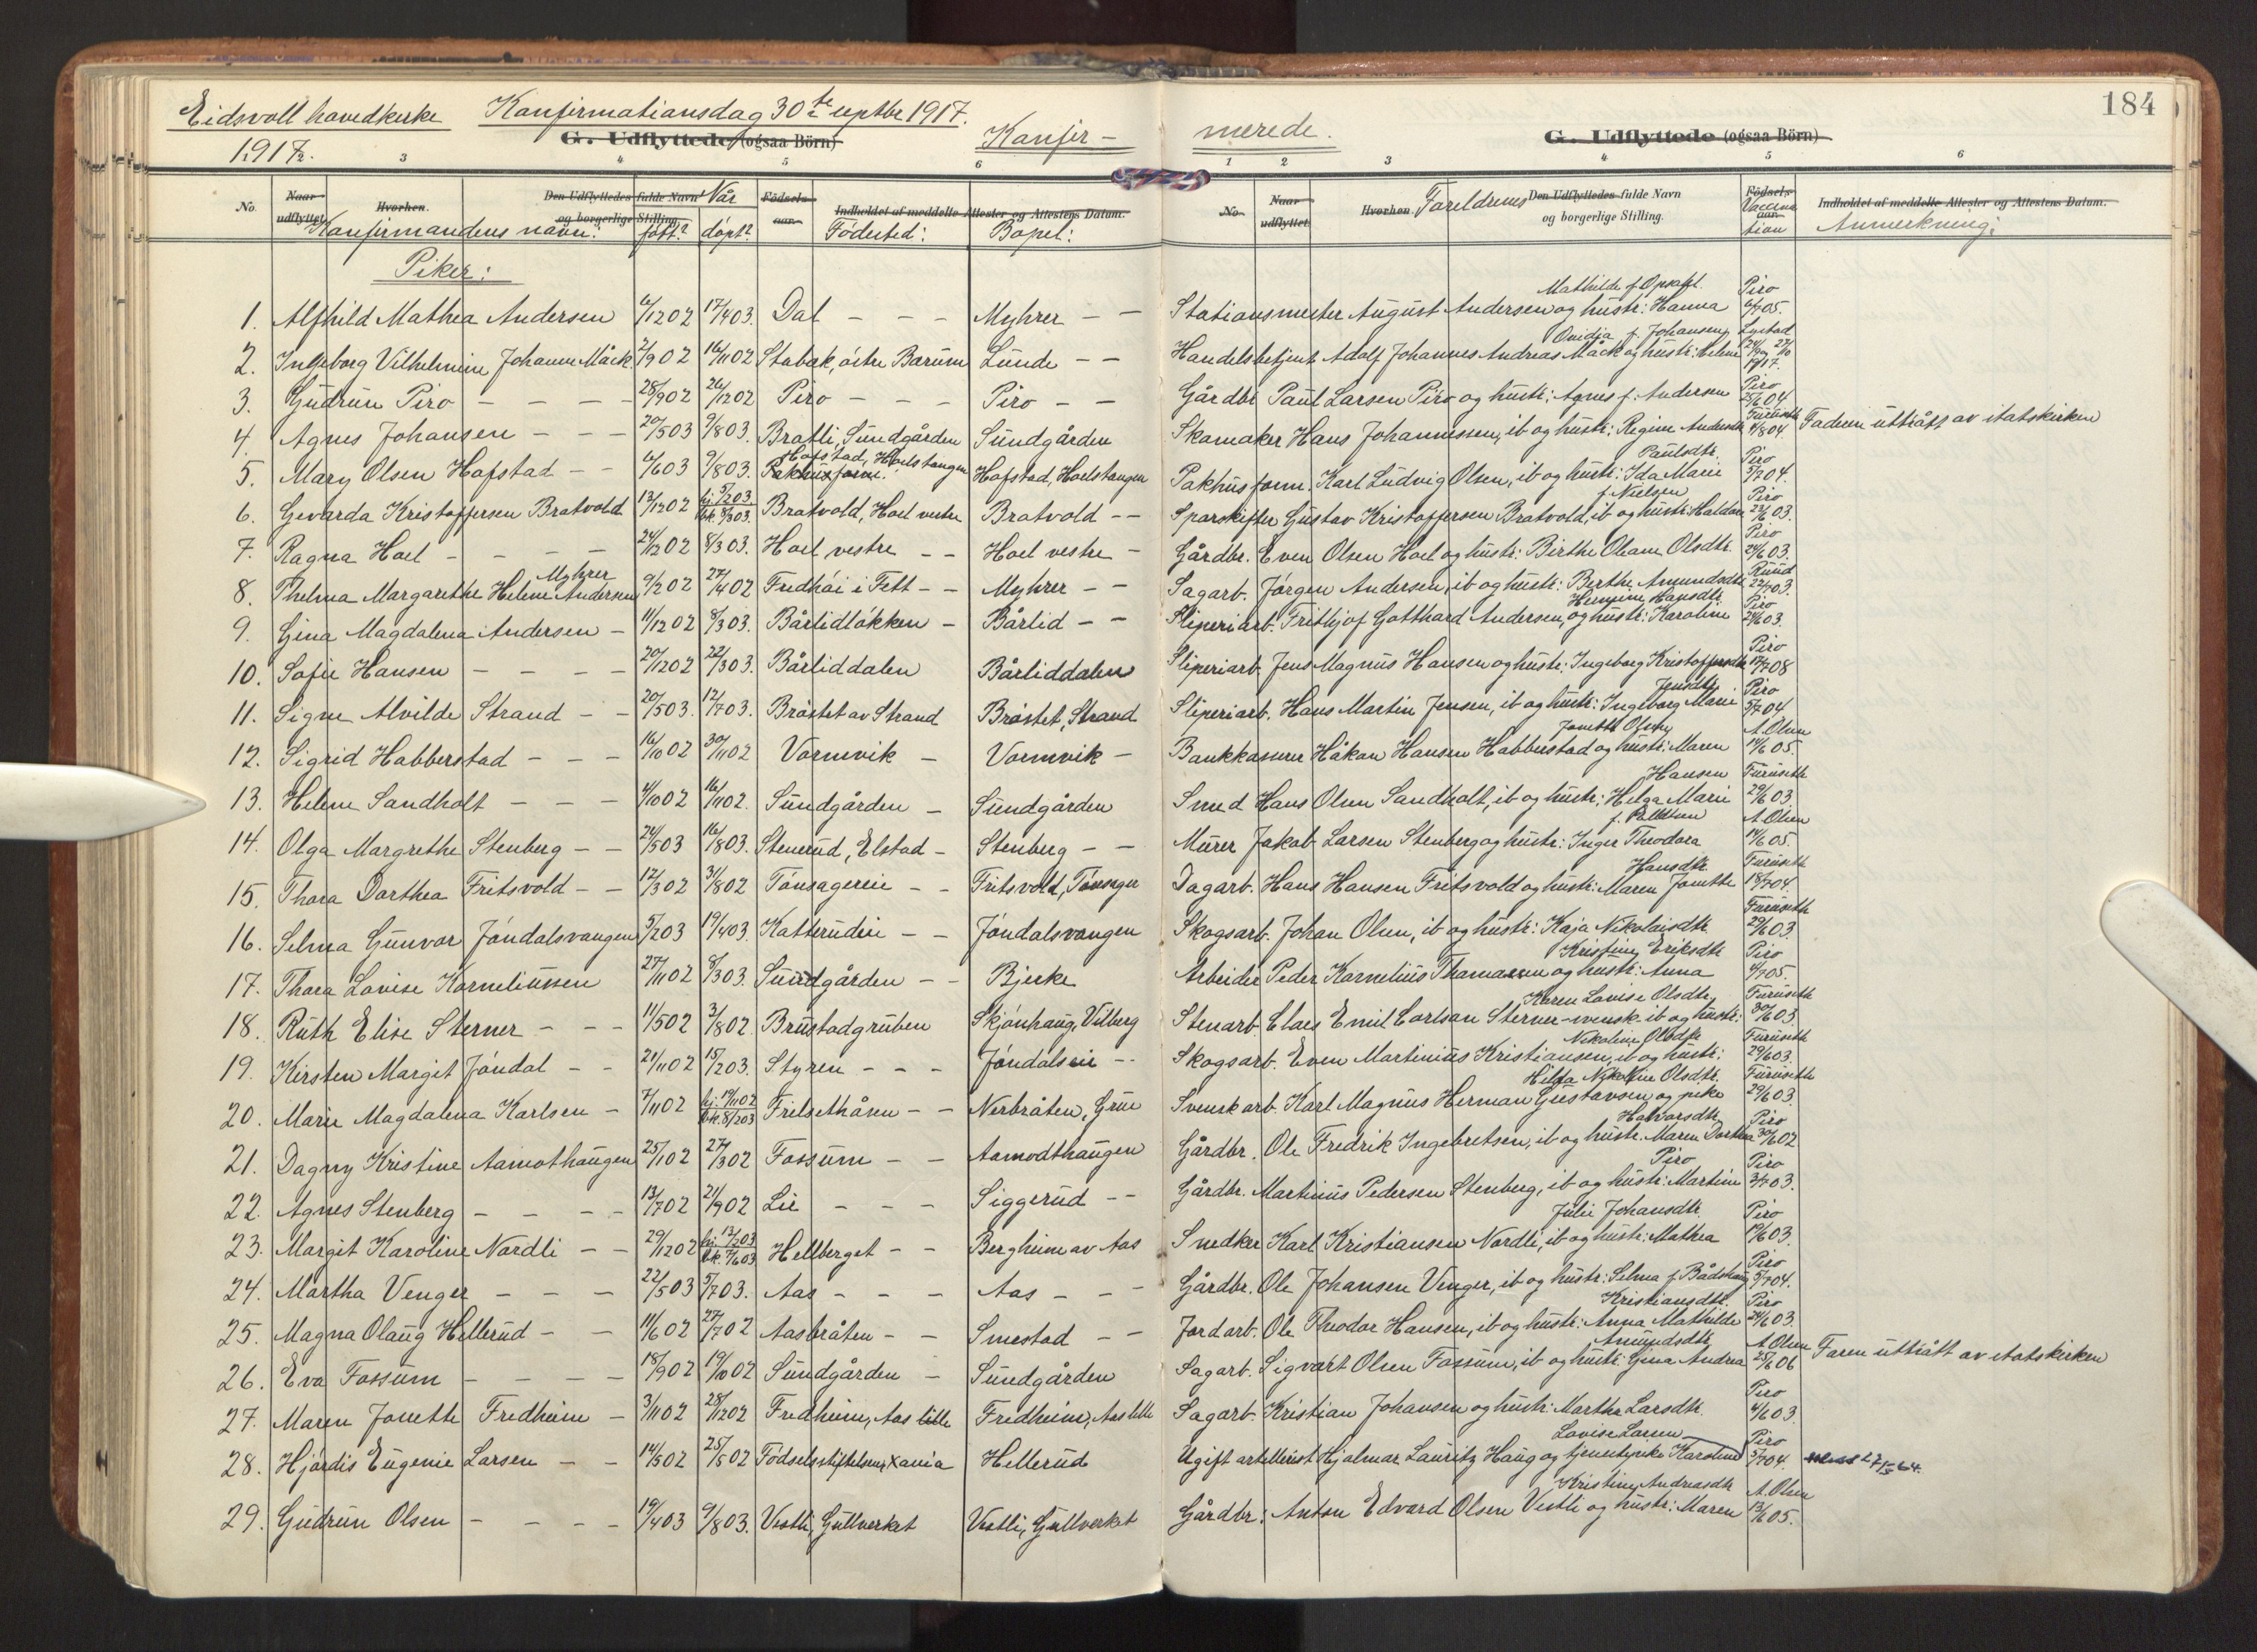 184
Eidsvoll hovedkirke Konfirmationsdag 30te septbr 1917.
1917.
G. Udflyttede (ogsaa Börn)
Konfir- merede.
G. Udflyttede (ogsaa Börn)
3 4 5 6 1 2 3 4 5 6
No. Naar udflyttet. Hvorhen. Den Udflyttedes fulde Navn og borgerlige Stilling. Födselsaar. Indholdet af meddelte Attester og Attestens Datum.
Konfirmandens navn: Når født? døpt? Födested: Bopel:
No. Naar udflyttet. Hvorhen. Den Udflyttedes fulde Navn og borgerlige Stilling. Födselsaar. Indholdet af meddelte Attester og Attestens Datum.
Foreldrenes Vaccination Anmerkning:
Piker:
1. Alfhild Mathea Andersen 6/12 02 17/4 03. Dal - - - Myhrer - - Stationsmester August Andersen og hustr: Hanna Mathilde f. Opsahl. Piro 6/7 05.
2. Ingeborg Vilhelmine Johanne Måck 2/9 02 16/11 02 Stabæk, östre Bærum Lunde - - Handelsbetjent Adolf Johannes Andreas Måck og hustr: Helene Ovidia f. Johansen Lystad 1917.
3. Gudrun Piro - - - - 28/9 02 26/12 02 Piro - - - Piro - - Gårdbr Paul Larsen Piro og hustr: Agnes f. Andersen Piro 25/6 04
4. Agnes Johansen - - - 20/5 03 9/8 03. Bratli, Sundgården Sundgården Skomaker Hans Johannessen, ib og hustr: Regine Andersdtr Furuseth 4/8 04 Faderen uttrått av statskirken
5. Mary Olsen Hofstad - - 6/6 03 9/8 03. Hofstad, Hoelstangen Hofstad, Hoelstangen Pakhusform. Karl Ludvig Olsen, ib og hustr: Ida Marie Paulsdtr. Piro 5/7 04.
6. Gevarda Kristoffersen Bratvold 13/12 02 hj. 5/2 03. bk. 8/3 03. Bratvold, Hoel vestre Bratvold - - Sporskifter Gustav Kristoffersen Bratvold, ib og hustr: Haldora f. Nielsen Piro 23/6 03.
7. Ragna Hoel - - - - 24/12 02 8/3 03. Hoel vestre - - Hoel vestre - Gårdbr. Even Olsen Hoel og hustr: Birthe Oleane Olsdtr. Piro 24/6 03.
8. Thelma Margarethe Helene Andersen Myhrer 9/2 02 27/4 02 Fredhöi i Fett - - Myhrer - - Sagarb. Jørgen Andersen, ib og hustr: Berthe Amundsdtr Ruud 22/7 03.
9. Gina Magdalena Andersen - 11/12 02 8/3 03. Bårlidløkken - Bårlid - - Sliperiarb. Frithjof Gotthard Andersen og hustr: Karoline Hermine Hansdtr. Piro 24/6 03.
10. Sofie Hansen - - - - 20/12 02 22/3 03. Bårliddalen Bårliddalen Sliperiarb. Jens Magnus Hansen og hustr: Ingeborg Kristoffersdtr Piro 17/7 08
11. Signe Alvilde Strand - - 20/5 03. 12/7 03. Bråstet av Strand Bråstet, Strand Sliperiarb. Hans Martin Jensen, ib og hustr: Ingeborg Marie Jensdtr. Piro 5/7 04
12. Sigrid Habberstad - - - 16/10 02 30/11 02 Vormvik - Vormvik - Bankkasserer Håkon Hansen Habberstad og hustr: Maren A. Olsen 14/6 05.
13. Helene Sandholt - - - 4/10 02 16/11 02. Sundgården - Sundgården Smed Hans Olsen Sandholt, ib og hustr: Helga Marie Hansen Furuseth 29/6 03
14. Olga Margrethe Stenberg - - 24/5 03 16/8 03. Stenerud, Elstad - Stenberg - - Murer Jakob Larsen Stenberg og hustr: Inger Theodora A. Olsen 14/6 05.
15. Thora Dorthea Fritsvold - - 12/3 02 31/8 02 Tønsagereie - - Fritsvold, Tønsager Dagarb. Hans Hansen Fritsvold og hustr: Maren Jonette Hansdtr. Furuseth 18/7 04.
16. Selma Gunvor Jøndalsvangen 5/2 03 19/4 03. Katterudeie - - Jøndalsvangen Skogsarb. Johan Olsen, ib og hustr: Kaja Nikolaisdtr. Furuseth 29/6 03.
17. Thora Lovise Korneliussen 27/11 02 8/3 03. Sundgården - - Bjerke Arbeider Peder Kornelius Thomassen og hustr: Anna Kristine Eriksdtr. Piro 4/7 05.
18. Ruth Elise Sterner - - - 11/5 02 3/8 02. Brustadgruben Skjønhaug, Vilberg Stenarb. Claes Emil Carlson Sterner - svensk - ib og hustr: Karen Lovise Olsdtr. Furuseth 30/6 03.
19. Kirsten Margit Jøndal - - 21/11 02 15/2 03. Styren - - - Jøndalseie - - Skogsarb. Even Martinius Kristiansen, ib og hustr: Nikoline Olsdtr. Furuseth 29/6 03.
20. Marie Magdalena Karlsen - 7/11 02 hj. 19/11 02 bk. 8/2 03 Frilsethåsen - - Nerbråten, Grue Svensk arb. Karl Magnus Herman Gustavsen og pike Hilda Nikoline Olsdtr. Furuseth 29/6 03.
21. Dagny Kristine Aamothaugen 25/1 02 27/3 02 Fossum - - Aamodthaugen Gårdbr. Ole Fredrik Ingebretsen, ib og hustr. Maren Dorthea Halvorsdtr. Piro 30/6 02
22. Agnes Stenberg - - - - 13/7 02 21/9 02 Lie - - - Siggerud - - Gårdbr. Martinius Pedersen Stenberg, ib og hustr: Martine Piro Piro 3/7 03.
23. Margit Karoline Nordli - - 29/12 02 hj. 13/2 03 bk. 7/6 03 Hellberget - - Bergheim av Aas Snedker Karl Kristiansen Nordli, ib og hustr: Mathea Julie Johansdtr. Piro 19/6 03.
24. Martha Venger - - - 22/5 03 5/7 03. Aas - - - Aas - - - Gårdbr. Ole Johansen Venger, ib og hustr: Selma f. Bådshaug Piro 5/7 04.
25. Magna Olaug Hellerud - - 11/6 02 27/7 02 Aasbråten - - Smestad - - Jordarb. Ole Theodor Hansen, ib og hustr: Anna Mathilde Kristiansdtr. Piro 24/6 03.
26. Eva Fossum - - - - 18/9 02 19/10 02 Sundgården - Sundgården Sagarb. Sigvart Olsen Fossum, ib og hustr: Gina Andrea Amundsdtr. A. Olsen 25/6 06 Faren uttrått av statskirken
27. Maren Jonette Fredheim - 3/11 02 28/12 02 Fredheim, Aas lille Fredheim, Aas lille Sagarb. Kristian Johansen og hustr: Marthe Larsdtr. Piro 4/6 03.
28. Hjørdis Eugenie Larsen - - 14/5 02 25/5 02 Fødselsstiftelsen, Xania Hellerud Ugift artellerist Hjalmar Lauritz Haug og tjenestepike Karoline Lovise Larsen Piro 5/7 04.
29. Gudrun Olsen - - - - 19/4 03 9/8 03. Vestli, Gullverket Vestli, Gullverket Gårdbr: Anton Edvard Olsen Vestli og hustr: Maren Kristine Andreasdtr A. Olsen 13/6 05.